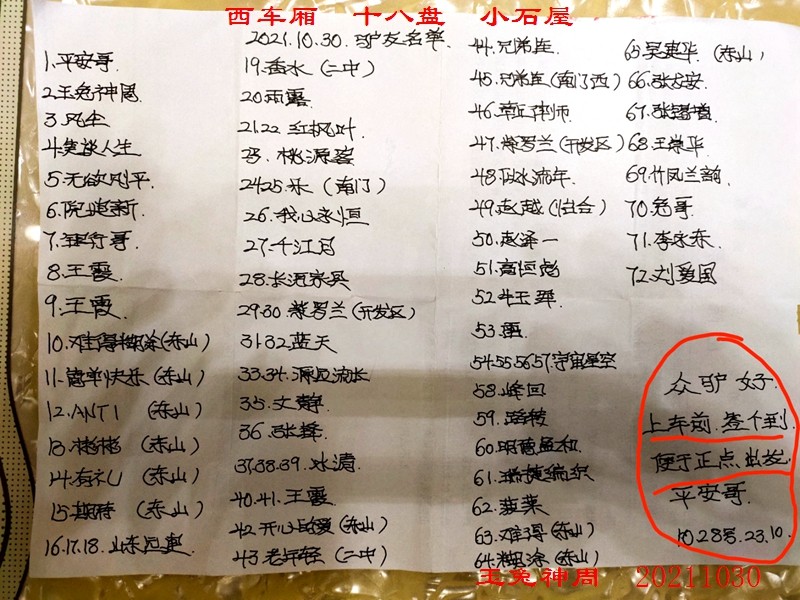 西车厢 十八盘 小石屋
2021.10.30.驴友名单.
1.平安哥.
2.玉兔神周.
3.风尘
4.笑谈人生
5.无欲则平
6.阮兆新.
7.哥.
8.王霞.
9.王霞.
10.难得糊涂(东山)
11.简单快乐(东山)
12.ANTI (东山)
13.彬彬 (东山)
14.有礼 (东山)
15.期待 (东山)
16.17.18.山东冠典
19.香水(二中)
20.雨露.
21.22 红枫叶.
23.桃源客
24.25.乐(南门)
26.我心永恒
27.千江月
28.长河家具
29.30.紫罗兰(开发区)
31.32.蓝天
33.34.源远流长
35.文静.
36.张辉.
37.38.39.冰清.
40.41.王霞.
42.开心(东山)
43.老年轻(二中)
44.兄弟连
45.兄弟连(南门西)
46.章丘律师
47.紫罗兰(开发区)
48.似水流年.
49.赵越(恒台)
50.赵泽一
51.高恒彪
52.牛玉珲.
53.雨.
54.55.56.57.宇宙星空
58.峰回
59.路转
60.明德益和
61.瑞捷编织
62.菠菜
63.难得(东山)
64.糊涂(东山)
65.吴建华.(东山)
66.张志安.
67.张
68.王崇华.
69.竹风兰韵.
70.老哥.
71.李永东.
72.刘爱国
众驴好.
上车前.签个到.
便于正点出发.
平安哥.
10.28号.23.10.
玉兔神周 20211030